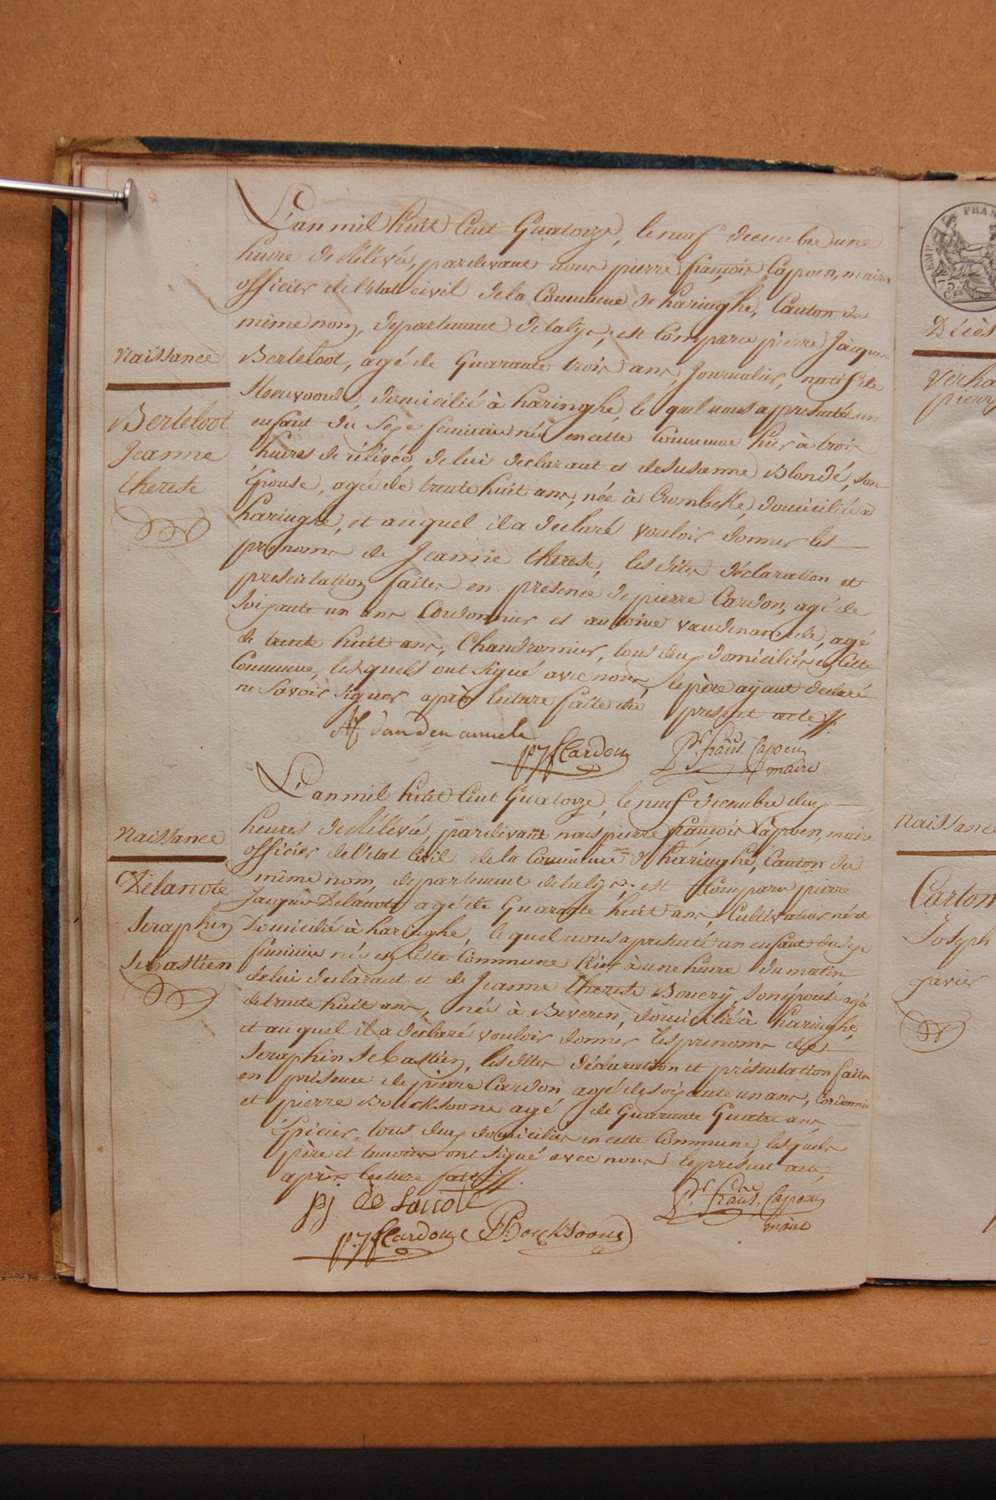 L'an mil huit Cent Quatorze, le neuf décembre une
heure de Rélévée, pardevant nous pierre françois Capoen, maire
officier de l'état civil de la Commune de haringhe, Canton du
même nom, département de la lijs, est Comparu pierre Jacques
Naissance
Berteloot, agé de Quarante trois ans, Journalier, natif de
Berteloot
Jeanne
therese
domicilié à haringhe, le quel nous a presenté un
enfant du Sexe feminin né en cette Commune hier à trois
heures de rélévée, de lui déclarant et de Susanne Blondé, son
épouse, agée de trente huit ans, née à Crombeke, domiciliée à
haringhe, et auquel il a déclaré vouloir donner les
prénoms de Jeanne therese, les dites déclaration et
presentation faites en présence de pierre Cardon, agé de
Soixante un ans Cordonnier et antoine vandenameele, agé
de trente huit ans, Chaudronnier, tous deux domiciliés en Cette
Commune, lesquels ont signé avec nous, le père ayant declaré
ne Savoir signer après lecture faite du présent acte
Vanden ameele
Cardon
Pr. frans Capoen
maire
L'an mil huit Cent Quatorze, le neuf décembre deux
Naissance
heures de Rélévée, pardevant nous pierre françois Capoen, maire
officier de l'état Civil de la Commune de haringhe, Canton du
même nom, département de la lijs, est Comparu pierre
Delanote
Seraphin
Sebastien
Jacques Delanote agé de Quarante huit ans, Cultivateur né et
Domicilié à haringhe, le quel nous a presenté un enfant du Sexe
né en Cette Commune hier à une heure du matin
de lui déclarant et de Jeanne therese Bouery, son épouse agée
de trente huit ans, née à Beveren, domiciliée à haringhe,
et auquel il a déclaré vouloir donner les prénoms de
Seraphin Sebastien, les dites déclaration et présentation faites
en présence de pierre Cardon agé de soixante un ans, Cordonnier
et pierre Boucksoone agé de Quarante Quatre ans
Épicier, tous deux domiciliés en cette Commune, lesquels
père et temoins ont signé avec nous le présent acte,
après lecture faite
pj de Lanote
Pr. frans. Capoen
maire
Cardon
Boucksoone
Décès
pierre
Naissance
Carton
Joseph